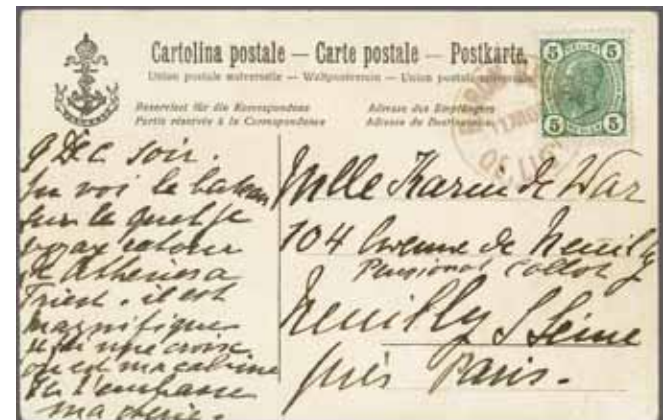 Cartolina postale — Carte postale — Postkarte.
Union postale universelle — Weltpostverein — Union postale universale
Reserviert für die Korrespondenz
Partie réservée à la Correspondance
Adresse des Empfängers
Adresse du Destinataire
5 HELLER 5
5 HELLER 5
9 Dec soir.
voi le bateau
sur le quel je
retour
Athenes a
Triest. il est
magnifique
une croix
ou est ma cabine
t'embrasse
ma cherie.
Mlle Karin de War
104 Avenue de Neuilly
Pensionat Collot
Neuilly S Seine
près Paris.